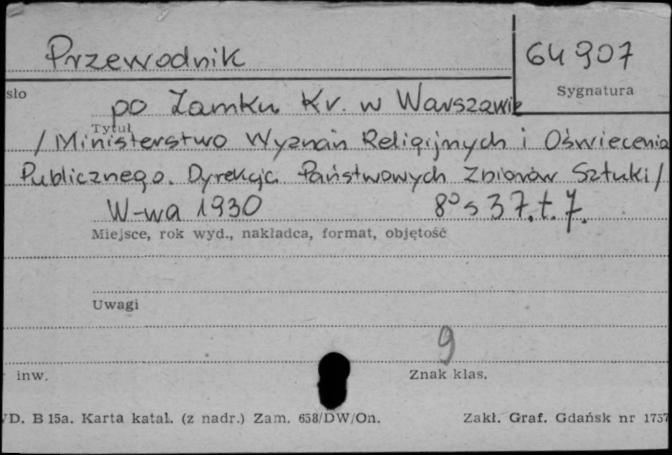 Przewodnik
64907
sło
Sygnatura
po Zamku Kr. w Warszawie
Tytuł
/Ministerstwo Wyznań Religijnych i Oświecenia
Publicznego. Dyrekcja Państwowych Zbiorów Sztuki/
W-wa 1930 8° s 37. t. 7.
Miejsce, rok wyd., nakładca, format, objętość
Uwagi
9
inw.
Znak klas.
D. B 15a. Karta katal. (z nadr.) Zam. 658/DW/On.
Zakł. Graf. Gdańsk nr 1757